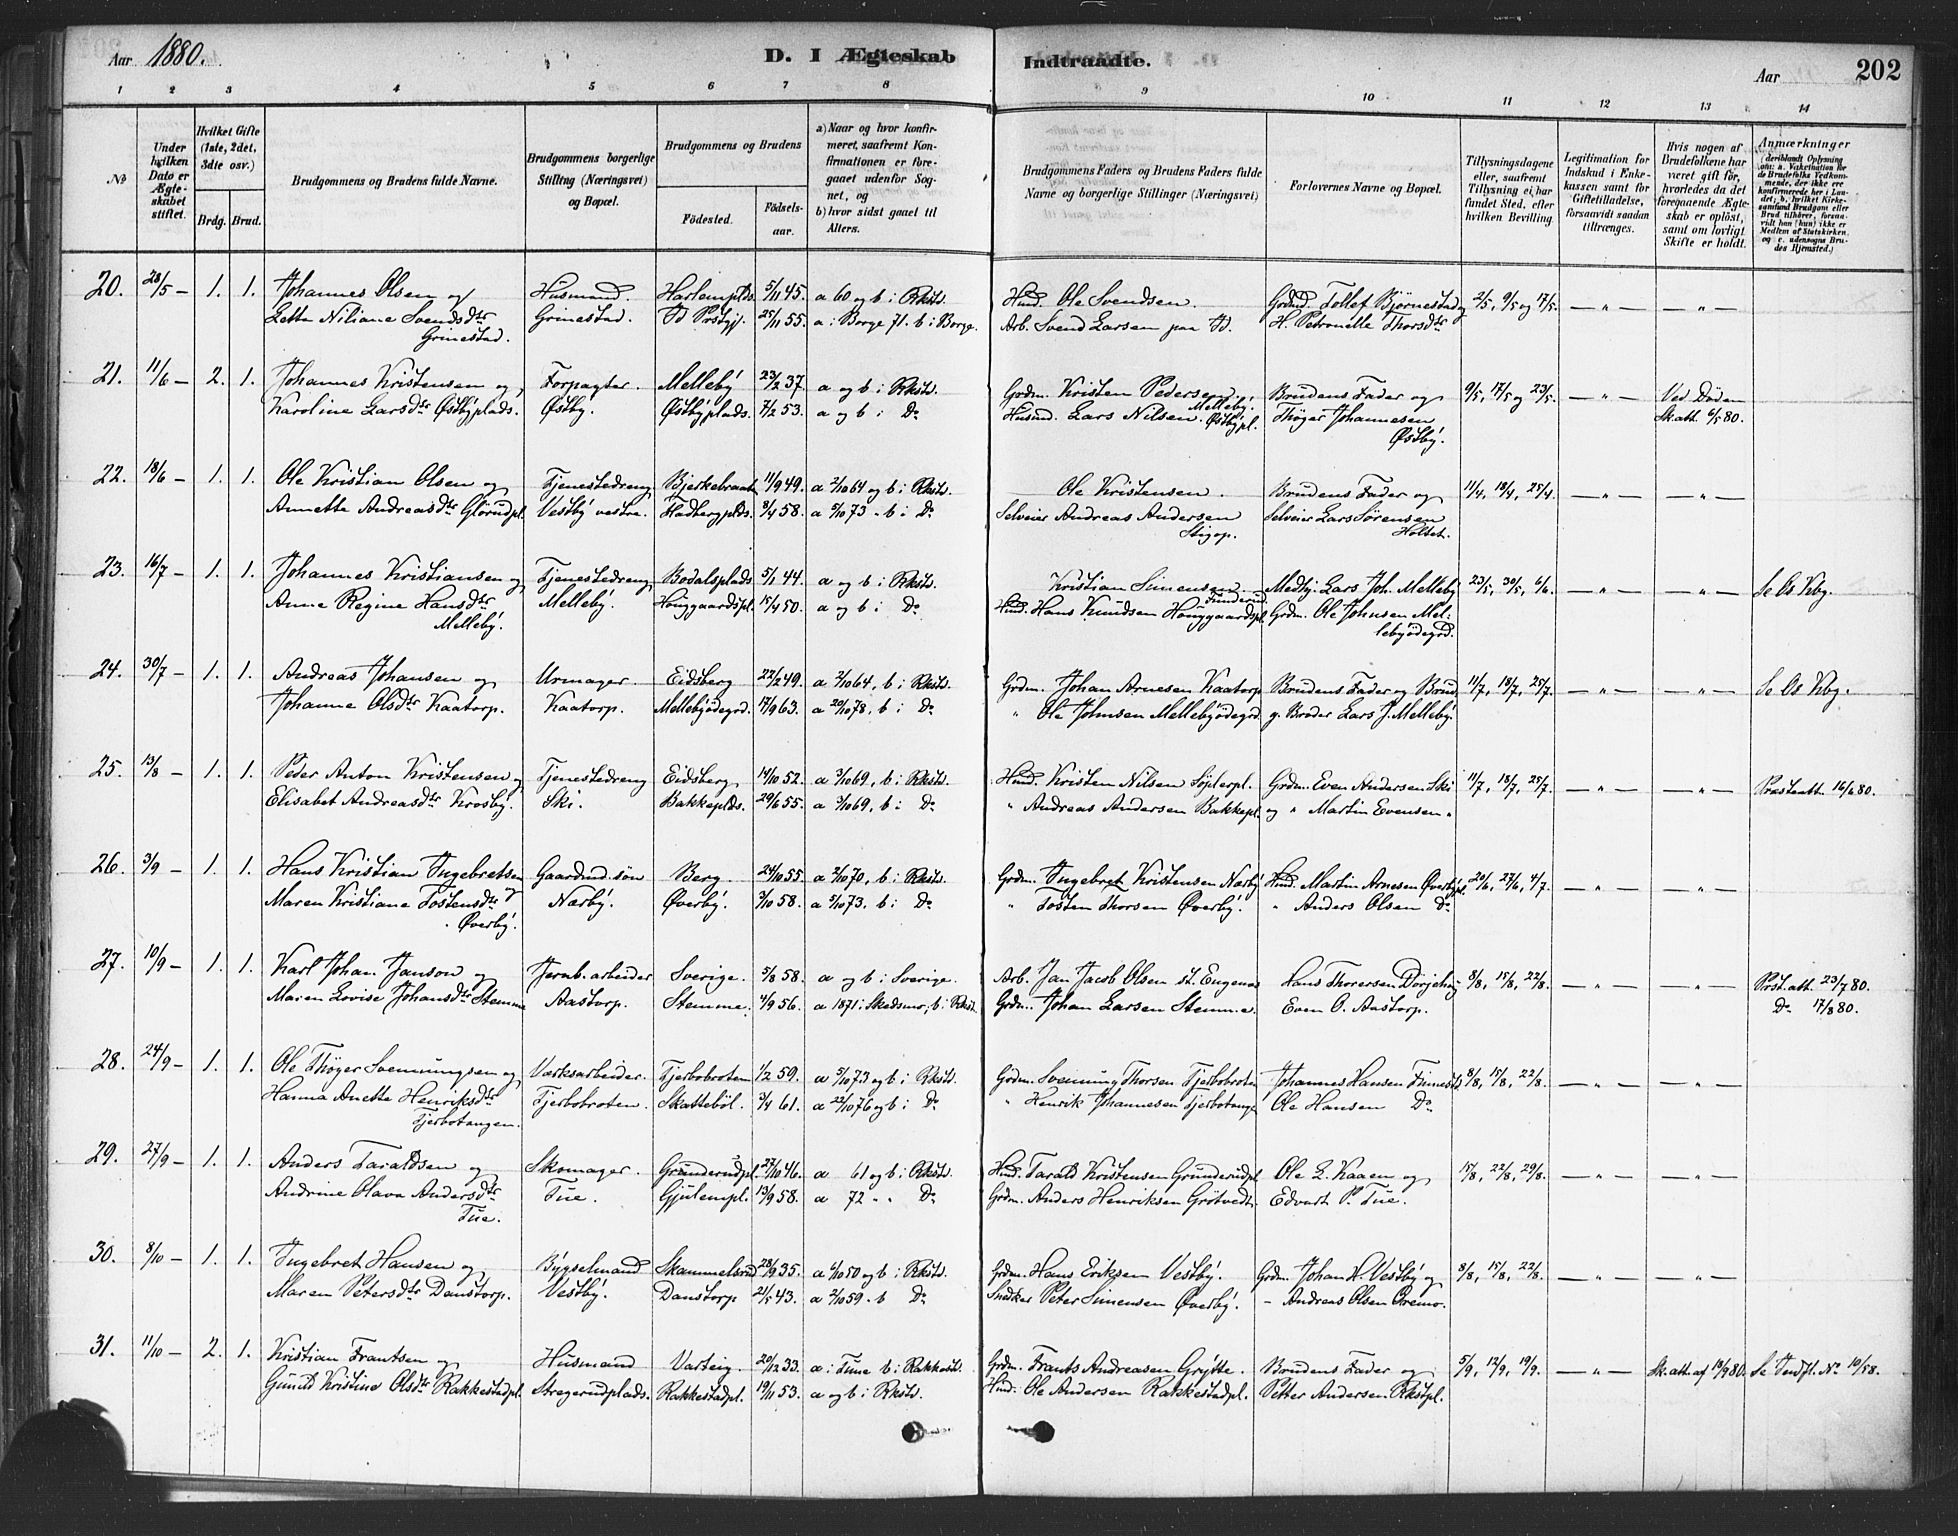 Aar 1880. D. I Ægteskab Indtraadte. Aar 202
1 2 3 4 5 6 7 8 9 10 11 12 13 14
No
Under hvilken Dato er Ægteskabet stiftet.
Hvilket Gifte (1ste, 2det, 3die osv.)
Brdg. Brud.
Brudgommens og Brudens fulde Navne.
Brudgommens borgerlige Stilling (Næringsvei) og Bopæl.
Brudgommens og Brudens
Fødested. Fødselsaar.
a) Naar og hvor konfirmeret, saafremt Konfirmationen er foregaaet udenfor Sognet, og
b) hvor sidst gaaet til Alters.
Brudgommens Faders og Brudens Faders fulde Navne og borgerlige Stillinger (Næringsvei)
Forlovernes Navne og Bopæl.
Tillysningsdagene eller, saafremt Tillysning ei har fundet Sted, efter hvilken Bevilling.
Legitimation for Indskud i Enkekassen samt for Giftetilladelse, forsaavidt saadan tiltrænges.
Hvis nogen af Brudefolkene har været gift før, hvorledes da det foregaaende Ægteskab er opløst, samt om lovligt Skifte er holdt.
Anmærkninger
20. 28/5 – 1. 1. Johannes Olsen og Husmand. Harlemplds. 5/11 45. a 60 og b i Rkstd. Husmd. Ole Svendsen. Grdmd. Tollef Bjørnestad og 2/5, 9/5 og 17/5. — " — — " —
Lette Niliane Svendsdtr Grimestad. Id Prstgj. 25/11 55. a i Borge 71. b i Borge. Arb. Svend Larsen paa Id. H. Petronelle Thorsdtr
Grimestad.
21. 11/6 – 2. 1. Johannes Kristensen og Forpagter. Melleby 23/2 37. a og b i Rkstd. Grdm. Kristen Pedersen Melleby. Brudens Fader og 9/5, 17/5 og 23/5. — " — Ved Døden
Karoline Larsdtr Østbyplads. Østby. Østbyplads. 7/2 53. a og b i Do Husmd. Lars Nilsen Østbypl. Thøger Johannesen Skatt. 6/5 80.
Østby.
22. 18/6 – 1. 1. Ole Kristian Olsen og Tjenestedreng Bjerkebraaten 11/9 49. a 2/10 64 og b i Rkstd. Ole Kristensen. Brudens Fader og 11/4, 18/4, 25/4. — " — — " —
Annette Andreasdtr Glørudpl. Vestby vestre. Hadbergplds. 3/4 58. a 5/10 73 – b i Do Selveier Andreas Andersen Selveier Lars Sørensen
Stigop. Holtet.
23. 16/7 – 1. 1. Johannes Kristiansen og Tjenestedreng Bodalsplads 5/1 44. a og b i Rkstd. Kristian Simensen Medhj. Lars Joh. Melleby 23/5, 30/5, 6/6. — " — — " — Se Os Kbg.
Anne Regine Hansdtr Melleby. Houggaardspl. 15/4 50. a og b i Do Husmd. Hans Knudsen Houggaardspl. Grdm. Ole Johnsen Mel-
Melleby. lebyødegrd.
24. 30/7 – 1. 1. Andreas Johansen og Urmager. Eidsberg 22/2 49. a 2/10 64, b i Rkstd. Grdm. Johan Arnesen Kaatorp Brudens Fader og Brud 11/7, 18/7, 25/7. — " — — " — Se Os Kbg.
Johanne Olsdtr Kaatorp. Kaatorp. Mellebyødegrd. 17/9 63. a 20/10 78, b i Do " Ole Johnsen Mellebyødegrd. g. Broder Lars J. Melleby.
25. 13/8 – 1. 1. Peder Anton Kristensen og Tjenestedreng Eidsberg 14/10 52. a 3/10 69, b i Rkstd. Husmd. Kristen Nilsen Grdm. Even Andersen Ski 11/7, 18/7, 25/7. — " — — " — Præsteatt. 16/6 80.
Elisabet Andreasdtr Krosby. Ski. Bakkeplds. 29/6 55. a 3/10 69, b i Do " Andreas Andersen Bakkepl. og " Martin Evensen "
26. 3/9 – 1. 1. Hans Kristian Ingebretsen Gaardmd. søn Berg. 24/10 55. a 2/10 70, b i Rkstd. Grdm. Ingebret Kristensen Nærby Husmd. Martin Arnesen Øverbypl. 20/6, 27/6, 4/7. — " — — " —
Maren Kristiane Tostensdtr Nærby. Øverby. 3/10 58. a 5/10 73, b i Do " Tosten Thorsen Øverby. " Anders Olsen Do
Øverby.
27. 10/9 – 1. 1. Karl Johan Janson og Jernb. arbeider Sverige. 5/8 58. a og b i Sverige. Arb. Jan Jacob Olsen st. Eugenas Hans Thoresen Dørjehaug 8/8, 15/8, 22/8. — " — — " — Prst. att. 23/7 80.
Maren Lovise Johansdtr Stemme Aastorp. Stemme. 4/9 56. a 1871 i Skedsmo, b i Rkstd. Grdm. Johan Larsen Stemme. Even O. Aastorp. Do 17/8 80.
28. 24/9 – 1. 1. Ole Thøger Svenningsen og Værksarbeider. Tjerbobroten 1/2 59. a 5/10 73 og b i Rkstd. Grdm. Svenning Thorsen Tjerbobroten Johannes Hansen 8/8, 15/8, 22/8. — " — — " —
Hanna Anette Henriksdtr Tjerbobroten. Skattebøl. 3/4 61. a 22/10 76 og b i Do " Henrik Johannesen Tjerbotangen Ole Hansen Do
Tjerbotangen.
29. 27/9 – 1. 1. Anders Taraldsen og Skomager. Grunderudpl. 27/10 46. a 61 og b i Rkstd. Husmd. Tarald Kristensen Grunderudpl. Ole L. Kaaen og 15/8, 22/8, 29/8. — " — — " —
Andrine Olava Andersdtr Tue. Gjulempl. 13/9 58. a 72 " " Do Grdm. Anders Henriksen Grøtvedt. Edvart P. Tue.
Tue.
30. 8/10 – 1. 1. Ingebret Hansen og Bygselmand Skammelsrud 28/9 35. a 6/10 50 og b i Rkstd. Grdm. Hans Eriksen Vestby. Grdm. Johan H. Vestby og 8/8, 15/8, 22/8. — " — — " —
Maren Petersdtr Danstorp. Vestby. Danstorp 21/5 43. a 2/10 59. b Do Snedker Peter Simensen Øverby. – Andreas Olsen Bremo.
31. 11/10 – 2. 1. Kristian Frantsen og Husmand Varteig. 20/12 33. a i Tune b i Rakkestd. Grdm. Frants Andreasen Grytte. Brudens Fader og 5/9, 12/9, 19/9. — " — Sk. att. af 14/9 80. Se Tendfl. No 10/58.
Gunild Kristine Olsdtr Rakkestadpl. Stregerudplads. Rakkestadpl. 19/11 53. a og b i Rkstd. Husmd. Ole Andersen Rakkestadpl. Petter Andersen Rkstpl.